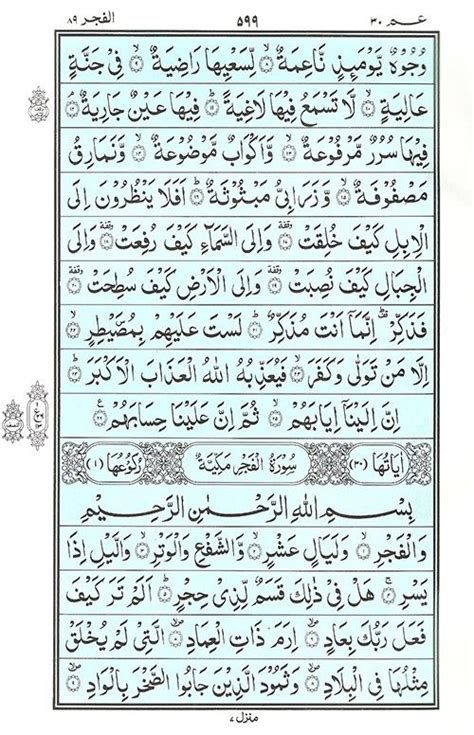 عـم ٣٠ ٥٩٩ الفجر ٨٩
وُجُوْهٌ يَّوْمَئِذٍ نَّاعِمَةٌ ۙ‏﴿۸﴾ لِّسَعْيِهَا رَاضِيَةٌ ۙ‏﴿۹﴾ فِىْ جَنَّةٍ
عَالِيَةٍ ۙ‏﴿۱۰﴾ لَّا تَسْمَعُ فِيْهَا لَاغِيَةً ؕ‏﴿۱۱﴾ فِيْهَا عَيْنٌ جَارِيَةٌ ۘ‏﴿۱۲﴾
فِيْهَا سُرُرٌ مَّرْفُوْعَةٌ ۙ‏﴿۱۳﴾ وَّاَكْوَابٌ مَّوْضُوْعَةٌ ۙ‏﴿۱۴﴾ وَّنَمَارِقُ
مَصْفُوْفَةٌ ۙ‏﴿۱۵﴾ وَّزَرَابِىُّ مَبْثُوْثَةٌ ؕ‏﴿۱۶﴾ اَفَلَا يَنْظُرُوْنَ اِلَى
الْاِبِلِ كَيْفَ خُلِقَتْ ۥ‏﴿۱۷﴾ وَاِلَى السَّمَآءِ كَيْفَ رُفِعَتْ ۥ‏﴿۱۸﴾ وَاِلَى
الْجِبَالِ كَيْفَ نُصِبَتْ ۥ‏﴿۱۹﴾ وَاِلَى الْاَرْضِ كَيْفَ سُطِحَتْ ۥ‏﴿۲۰﴾
فَذَكِّرْ ؕ اِنَّمَاۤ اَنْتَ مُذَكِّرٌ ؕ‏﴿۲۱﴾ لَسْتَ عَلَيْهِمْ بِمُصَۜيْطِرٍ ۙ‏﴿۲۲﴾
اِلَّا مَنْ تَوَلّٰى وَكَفَرَ ۙ‏﴿۲۳﴾ فَيُعَذِّبُهُ اللّٰهُ الْعَذَابَ الْاَكْبَرَ ؕ‏﴿۲۴﴾
اِنَّ اِلَيْنَاۤ اِيَابَهُمْ ۙ‏﴿۲۵﴾ ثُمَّ اِنَّ عَلَيْنَا حِسَابَهُمْ‏﴿۲۶﴾
اٰيَاتُهَا (٣٠) سُوْرَةُ الْفَجْرِ مَكِّيَّةٌ رُكُوْعُهَا (١)
بِسْمِ اللّٰهِ الرَّحْمٰنِ الرَّحِيْمِ
وَالْفَجْرِ ۙ‏﴿۱﴾ وَلَيَالٍ عَشْرٍ ۙ‏﴿۲﴾ وَّالشَّفْعِ وَالْوَتْرِ ۙ‏﴿۳﴾ وَالَّيْلِ اِذَا
يَسْرِ ۚ‏﴿۴﴾ هَلْ فِىْ ذٰلِكَ قَسَمٌ لِّذِىْ حِجْرٍ ؕ‏﴿۵﴾ اَلَمْ تَرَ كَيْفَ
فَعَلَ رَبُّكَ بِعَادٍ ۙ‏﴿۶﴾ اِرَمَ ذَاتِ الْعِمَادِ ۙ‏﴿۷﴾ الَّتِىْ لَمْ يُخْلَقْ
مِثْلُهَا فِى الْبِلَادِ ۙ‏﴿۸﴾ وَثَمُوْدَ الَّذِيْنَ جَابُوا الصَّخْرَ بِالْوَادِ ۙ‏﴿۹﴾
منزل ٧